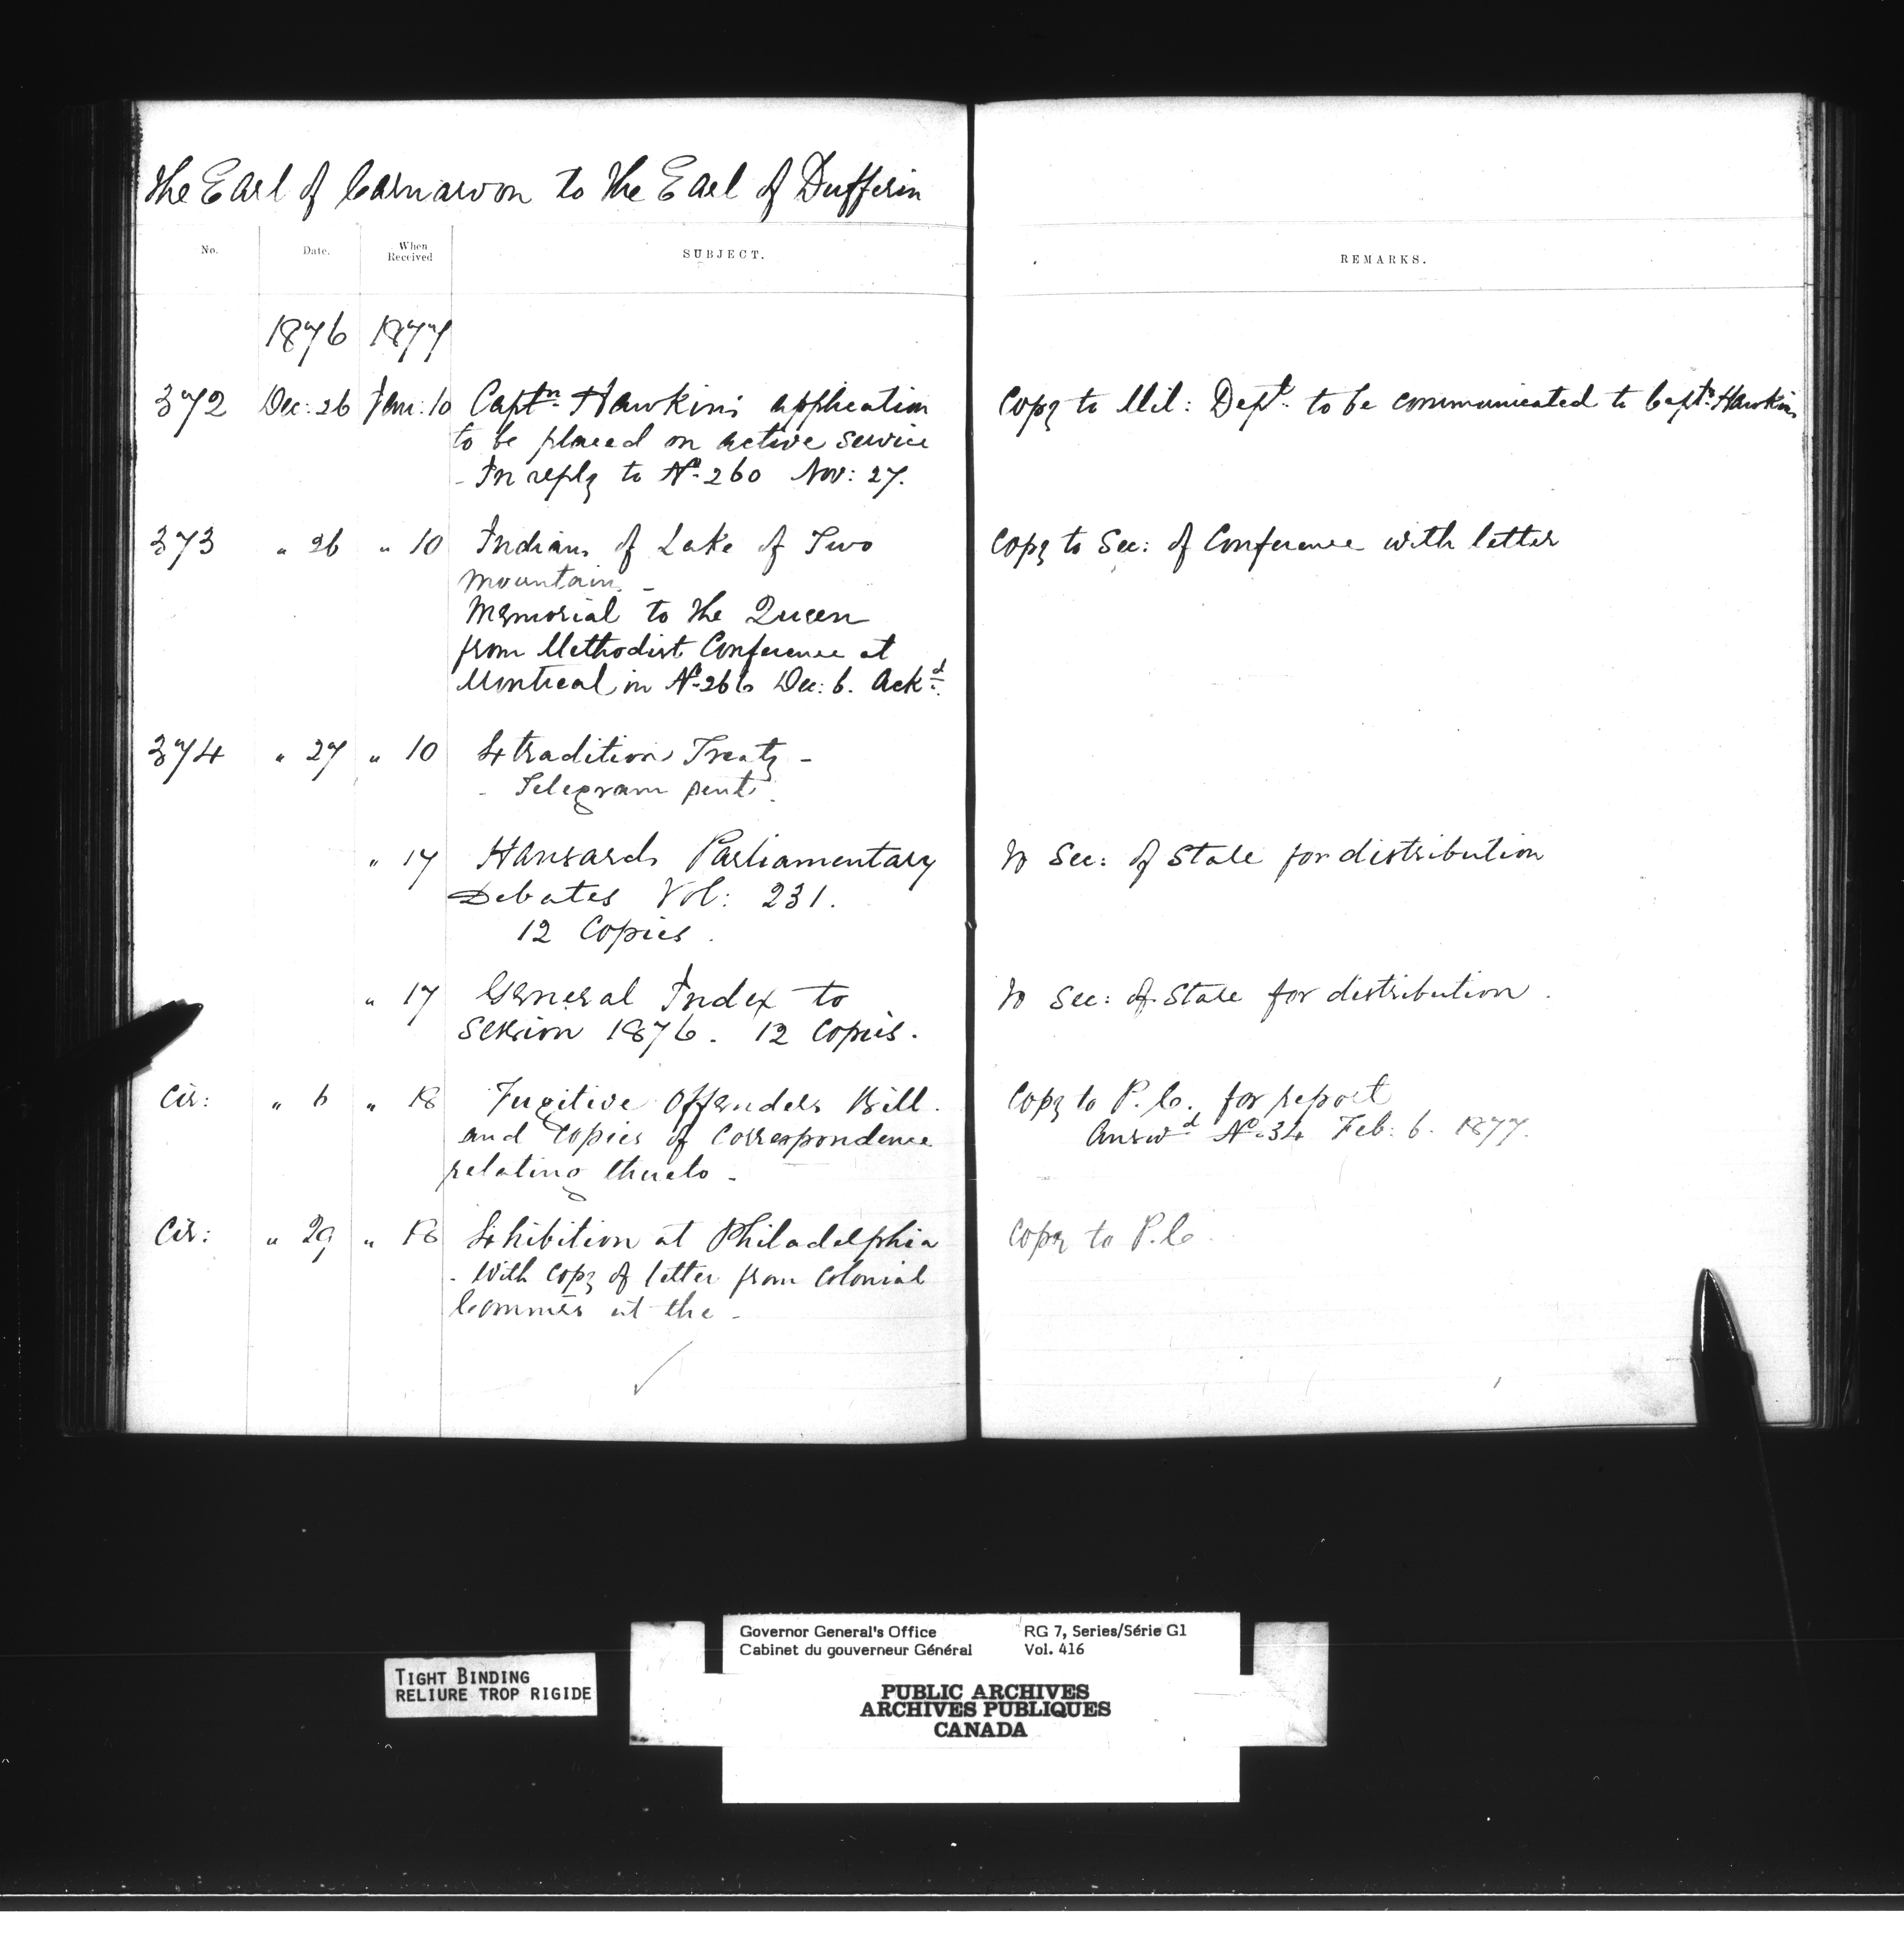 The Earl of Carnarvon to the Earl of Dufferin
No. Date. When Received SUBJECT. REMARKS.
1876 1877
372 Dec: 26 Jan: 10 Captn. Hawkins application Copy to Mil: Dept. to be communicated to Captn. Hawkins
to be placed on active service
- In reply to No. 260 Nov: 27.
373 " 26 " 10 Indians of Lake of Two Copy to Sec: of Conference with letter
Mountains -
Memorial to the Queen
from Methodist Conference at
Montreal in No. 266 Dec: 6. Ackd.
374 " 27 " 10 Extradition Treaty -
- Telegram sent.
" 17 Hansards Parliamentary To Sec: of State for distribution
Debates Vol: 231.
12 Copies.
" 17 General Index to To Sec: of State for distribution.
Session 1876. 12 Copies.
Cir: " 6 " 18 Fugitive Offenders Bill. Copy to P.C. for report
and copies of Correspondence Answd. No. 34 Feb: 6. 1877.
relating thereto -
Cir: " 29 " 18 Exhibition at Philadelphia Copy to P.C.
- With copy of letter from Colonial
Commrs at the -
Governor General's Office RG 7, Series/Série G1
Cabinet du gouverneur Général Vol. 416
TIGHT BINDING
RELIURE TROP RIGIDE
PUBLIC ARCHIVES
ARCHIVES PUBLIQUES
CANADA